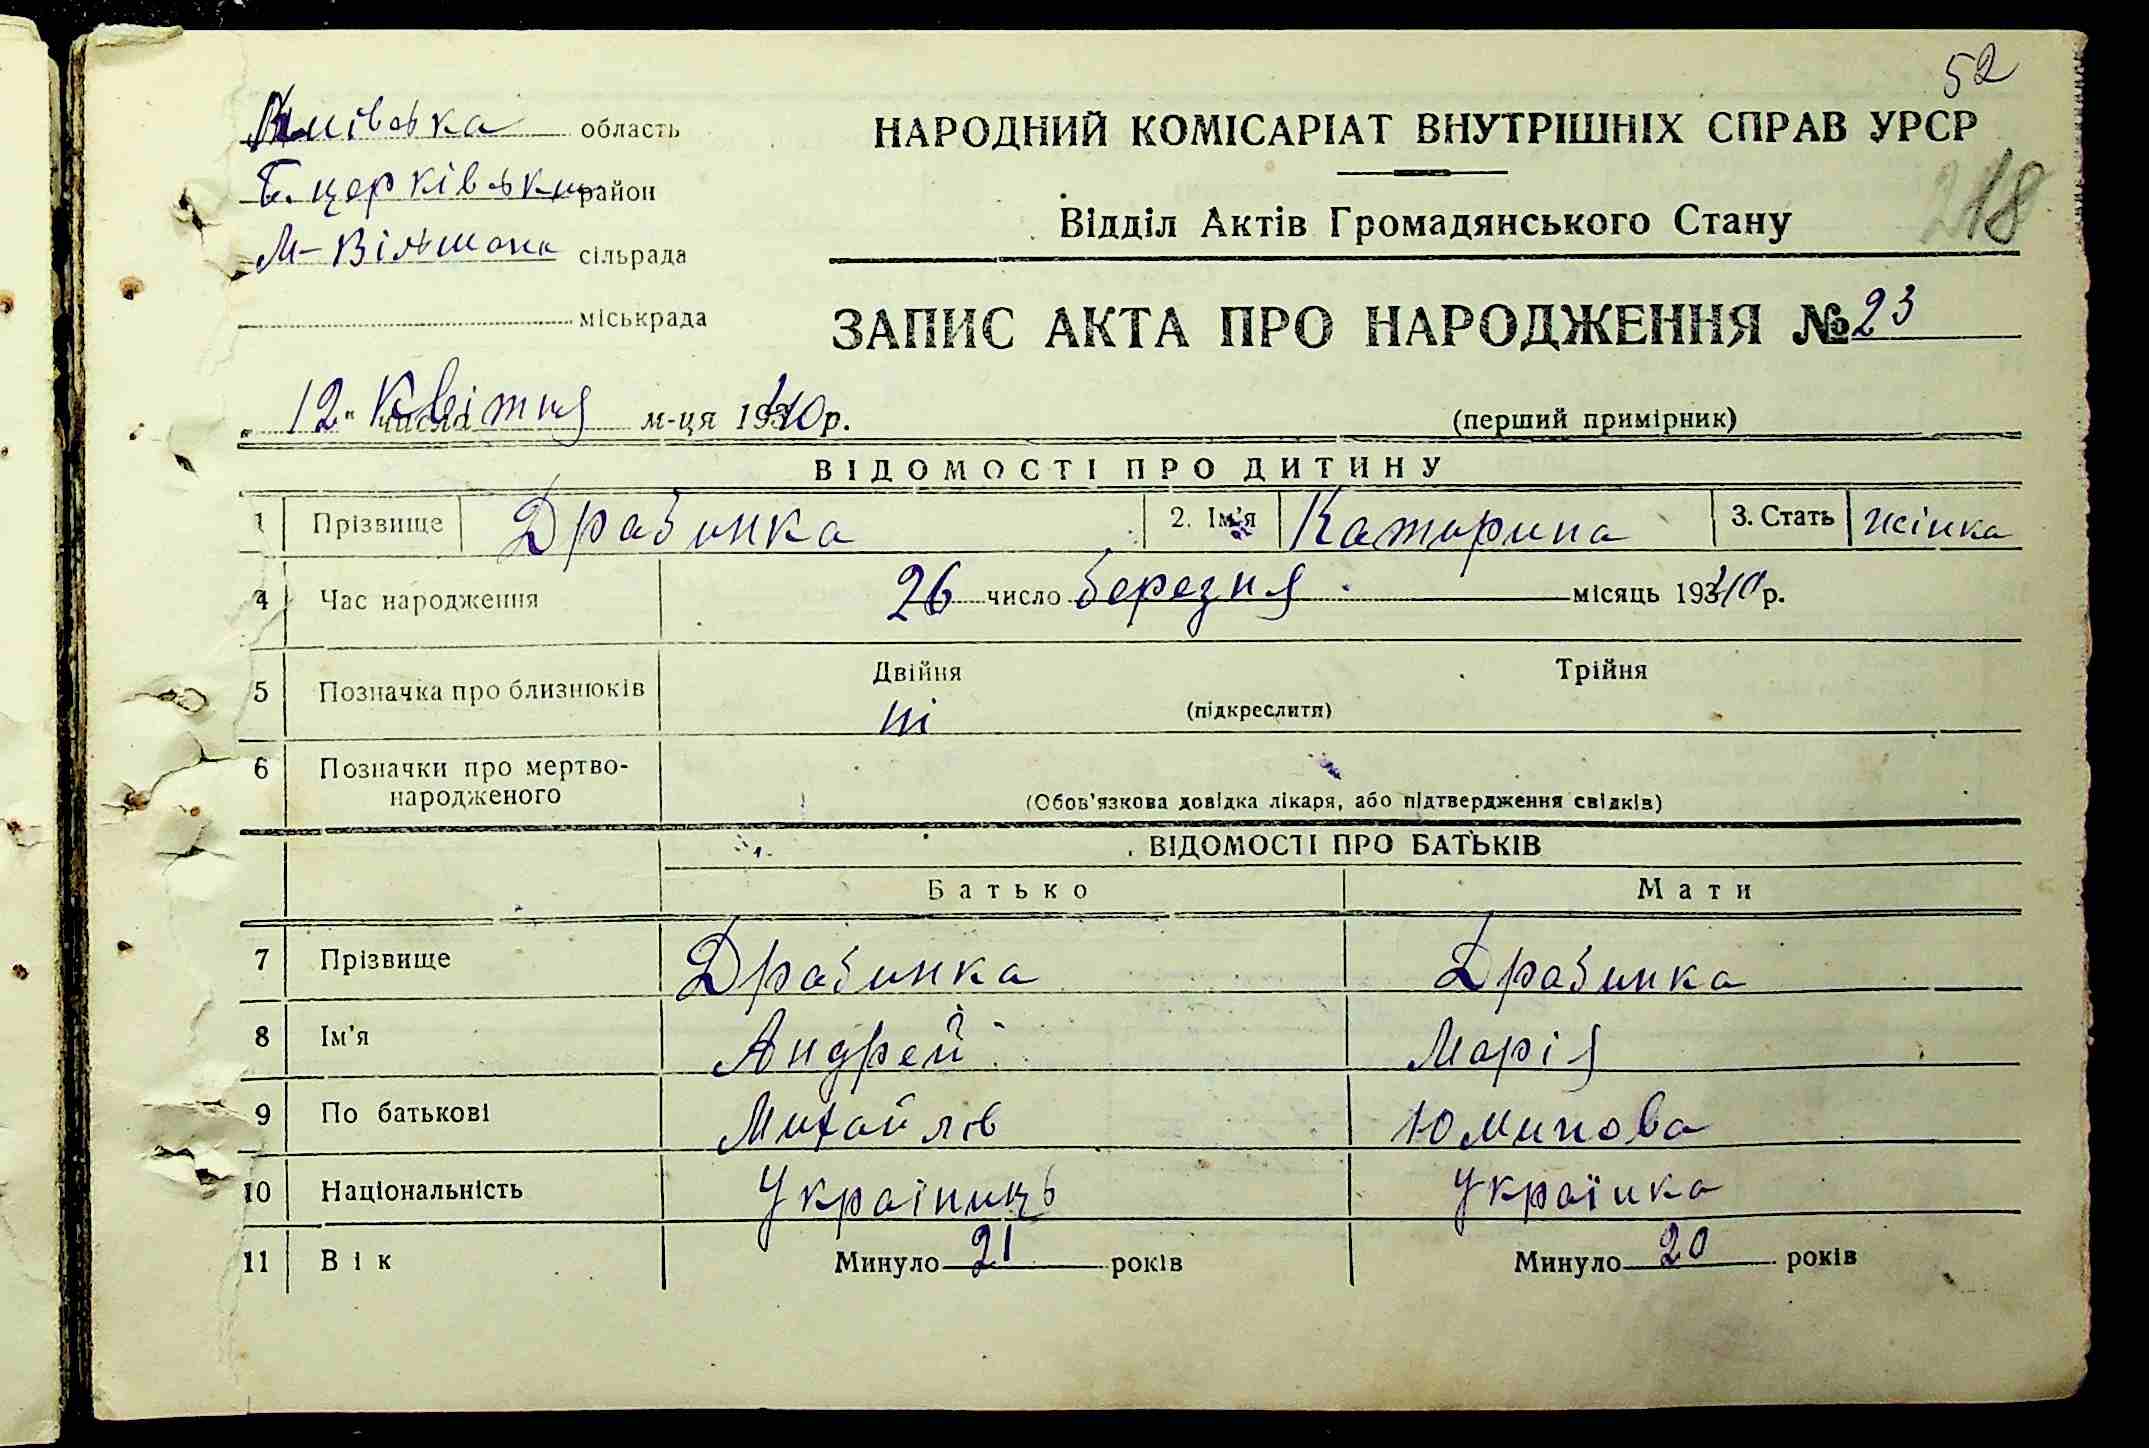 52
Київська область
НАРОДНИЙ КОМІСАРІАТ ВНУТРІШНІХ СПРАВ УРСР
Б. церківський район
218
Відділ Актів Громадянського Стану
М-Вільшана сільрада
міськрада
ЗАПИС АКТА ПРО НАРОДЖЕННЯ № 23
„12“ числа Квітня м-ця 1940 р.
(перший примірник)
ВІДОМОСТІ ПРО ДИТИНУ
1 Прізвище Драбинка 2. Ім'я Катирина 3. Стать жінка
4 Час народження 26 число березня місяць 1940 р.
5 Позначка про близнюків Двійня Трійня
ні (підкреслити)
6 Позначки про мертво-
народженого (Обов'язкова довідка лікаря, або підтвердження свідків)
ВІДОМОСТІ ПРО БАТЬКІВ
Батько Мати
7 Прізвище Драбинка Драбинка
8 Ім'я Андрей Марія
9 По батькові Михайлів Юминова
10 Національність Україниць Українка
11 Вік Минуло 21 років Минуло 20 років